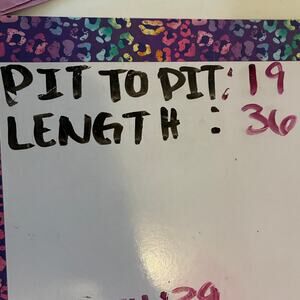 PIT TO PIT: 19
LENGTH : 36